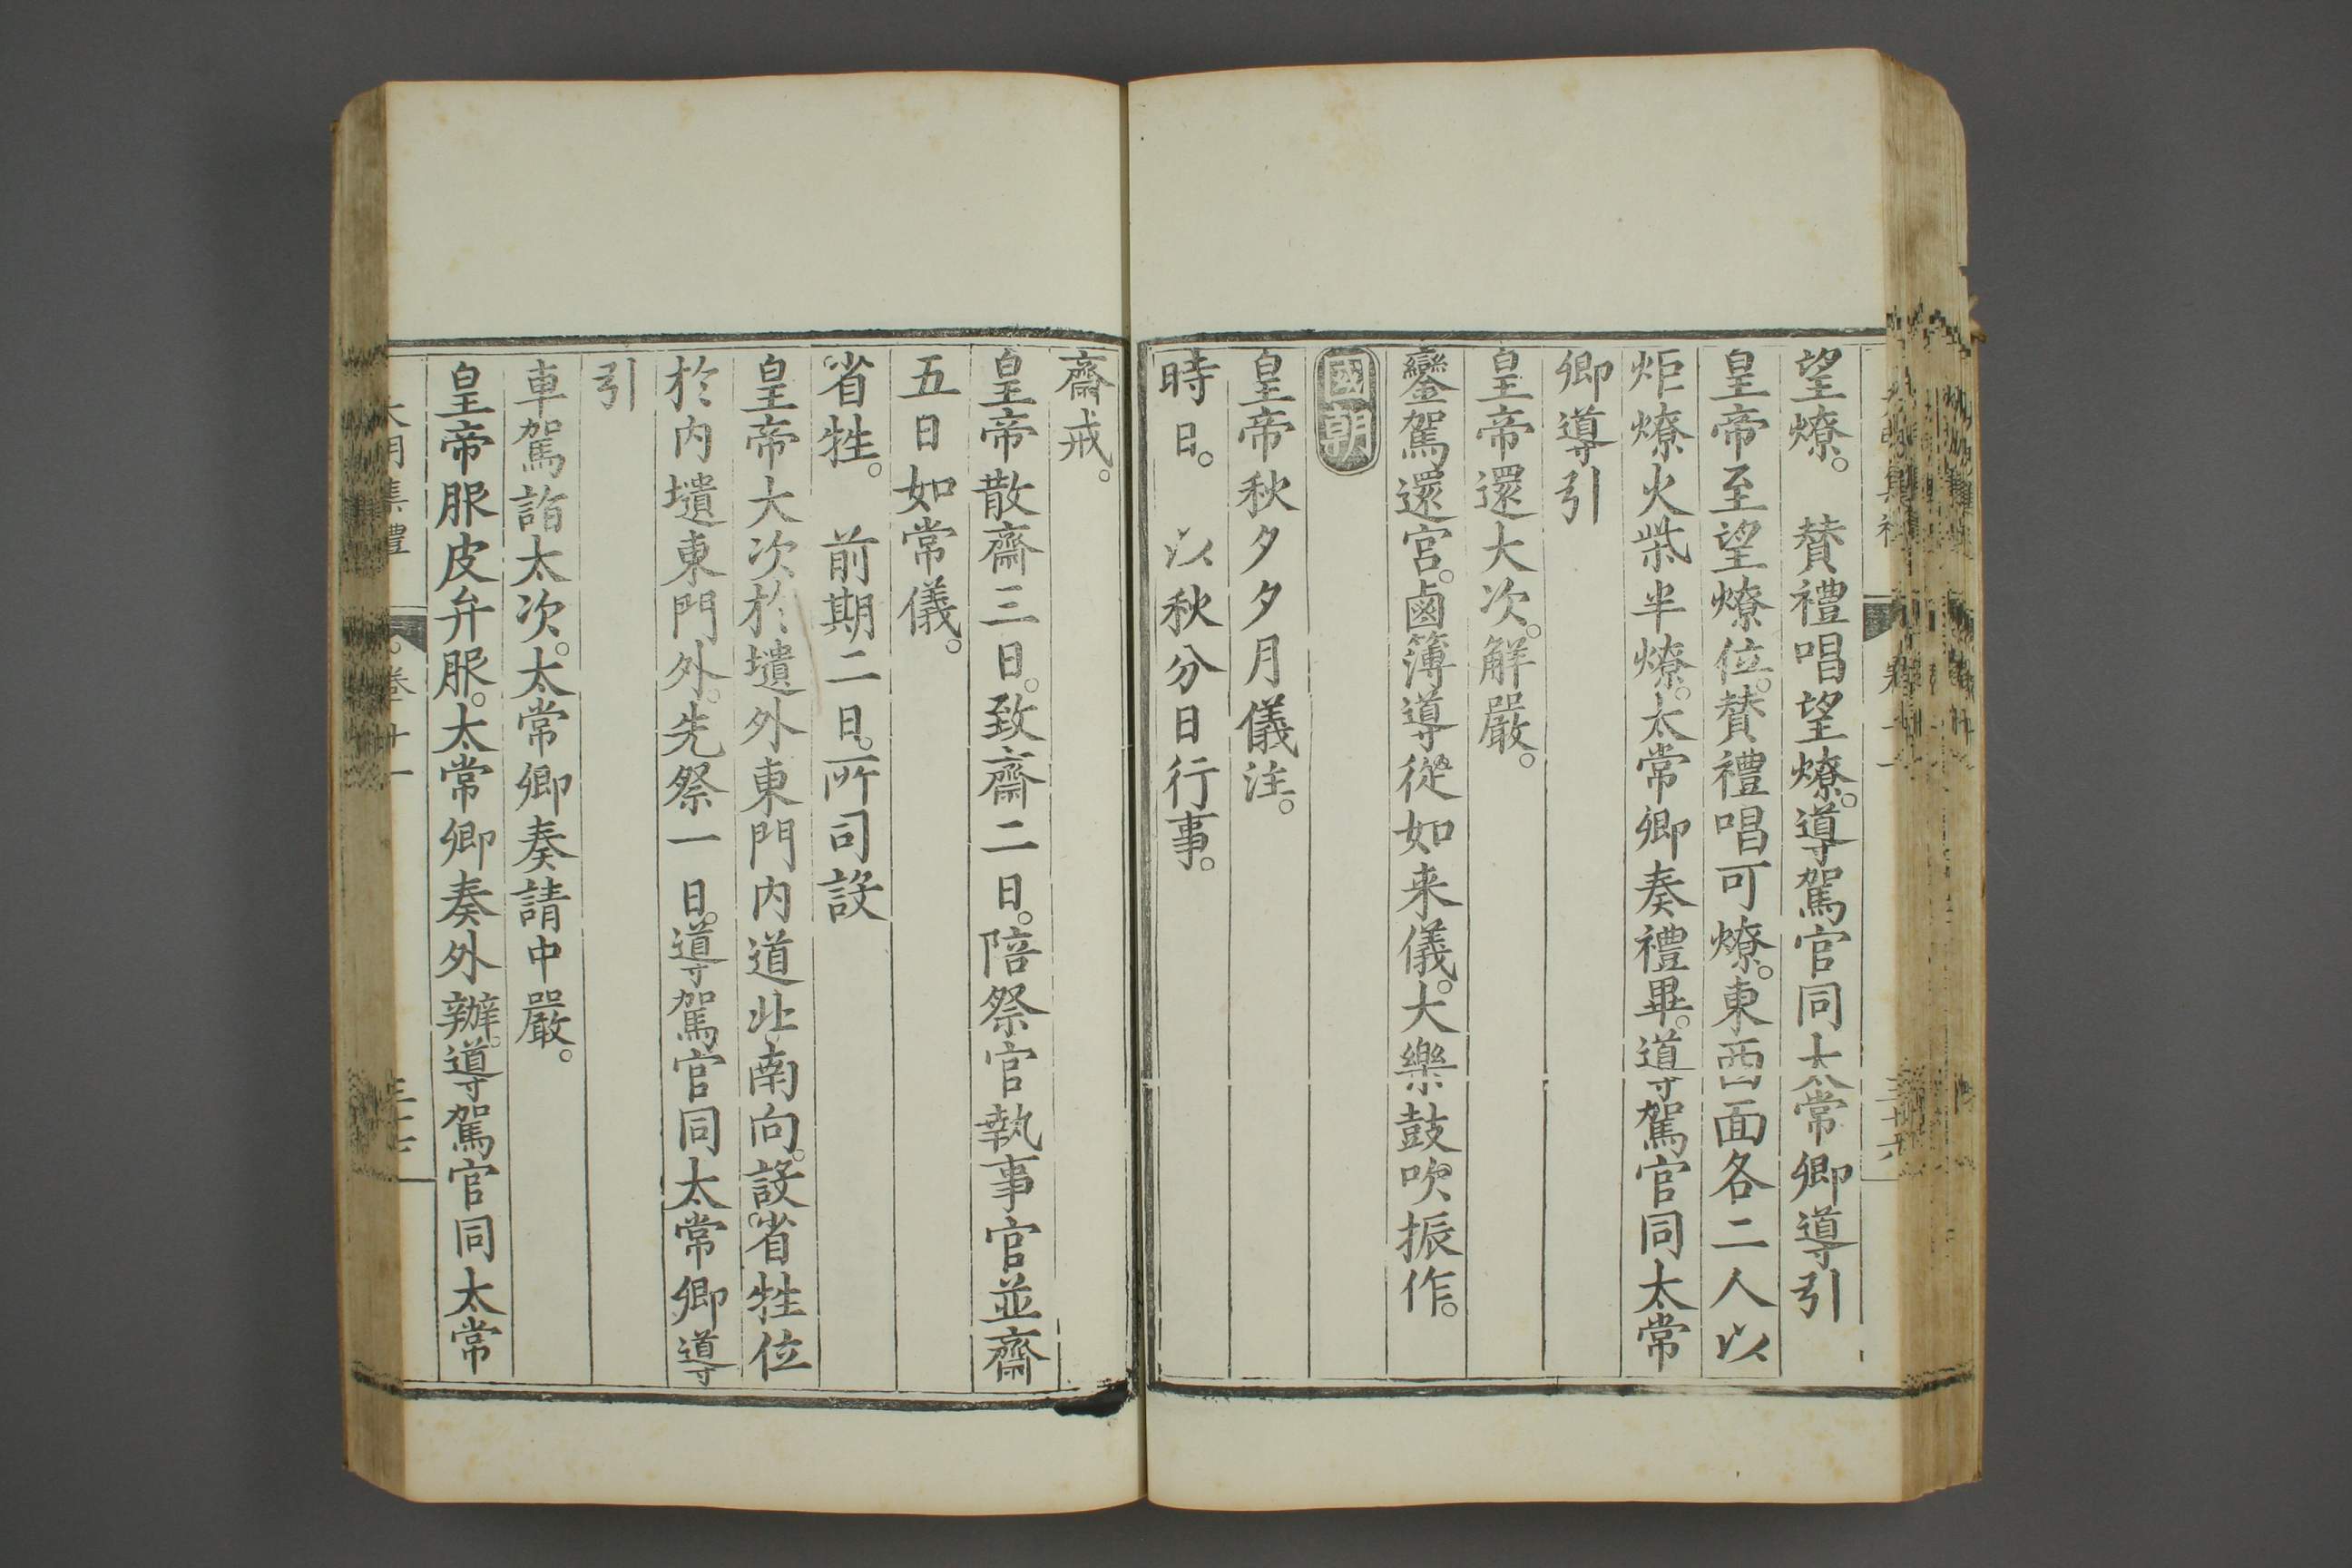 望燎。　贊禮唱望燎。導駕官同太常卿導引
皇帝至望燎位。贊禮唱可燎。東西面各二人以
炬燎火柴半燎。太常卿奏禮畢。導駕官同太常
卿導引
皇帝還大次。解嚴。
鑾駕還宮。鹵簿導從如来儀。大樂鼓吹振作。
國朝
皇帝秋夕夕月儀注。
時日。　以秋分日行事。
齋戒。
皇帝散齋三日。致齋二日。陪祭官執事官並齋
五日如常儀。
省牲。　前期二日。所司設
皇帝大次於壝外東門内道北南向。設省牲位
於内壝東門外。先祭一日。導駕官同太常卿導
引
車駕詣太次。太常卿奏請中嚴。
皇帝服皮弁服。太常卿奏外辦。導駕官同太常
大明集禮　卷廿一